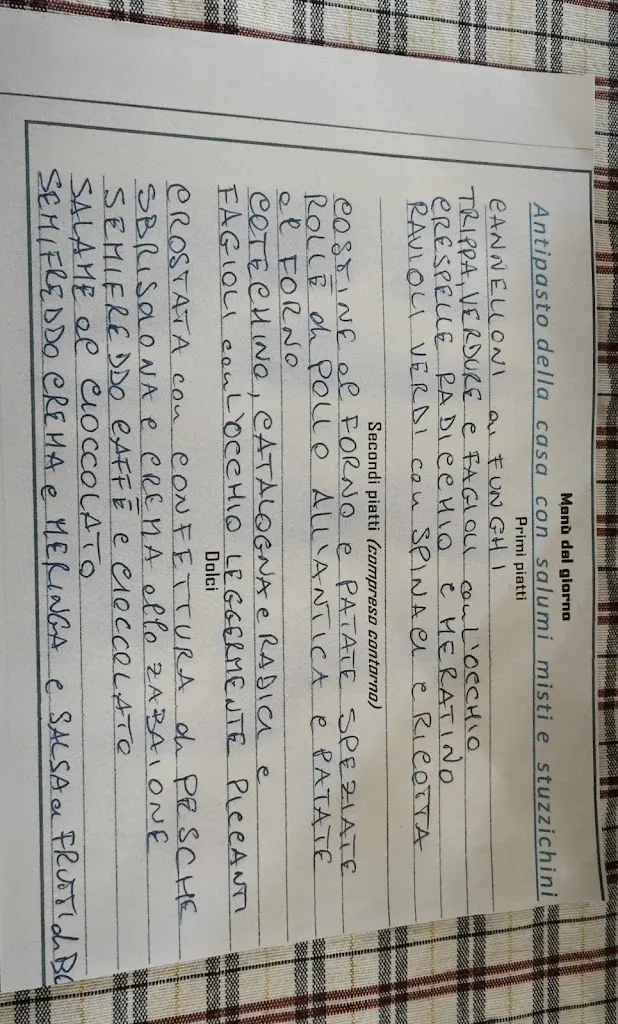 Menù del giorno
Antipasto della casa con salumi misti e stuzzichini
Primi piatti
CANNELLONI ai FUNGHI
TRIPPA, VERDURE e FAGIOLI con L'OCCHIO
CRESPELLE RADICCHIO e MERATINO
RAVIOLI VERDI con SPINACI e RICOTTA
Secondi piatti (compreso contorno)
COSTINE al FORNO e PATATE SPEZIATE
ROLLÈ di POLLO ALL'ANTICA e PATATE
al FORNO
COTECHINO, CATALOGNA e RADICI e
FAGIOLI con L'OCCHIO LEGGERMENTE PICCANTI
Dolci
CROSTATA con CONFETTURA di PESCHE
SBRISOLONA e CREMA allo ZABAIONE
SEMIFREDDO CAFFÈ e CIOCCOLATO
SALAME al CIOCCOLATO
SEMIFREDDO CREMA e MERINGA e SALSA ai FRUTTI di BO